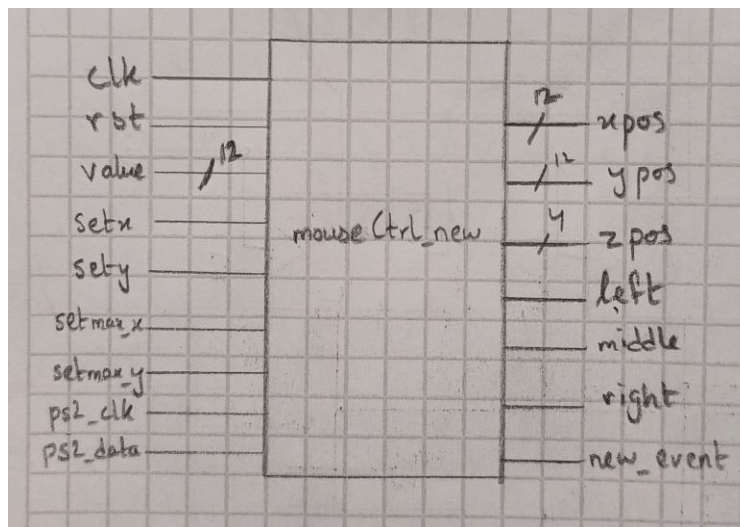 clk
rst
value
12
setx
sety
setmax_x
setmax_y
ps2_clk
ps2_data
mouseCtrl_new
12
xpos
12
ypos
4
zpos
left
middle
right
new_event